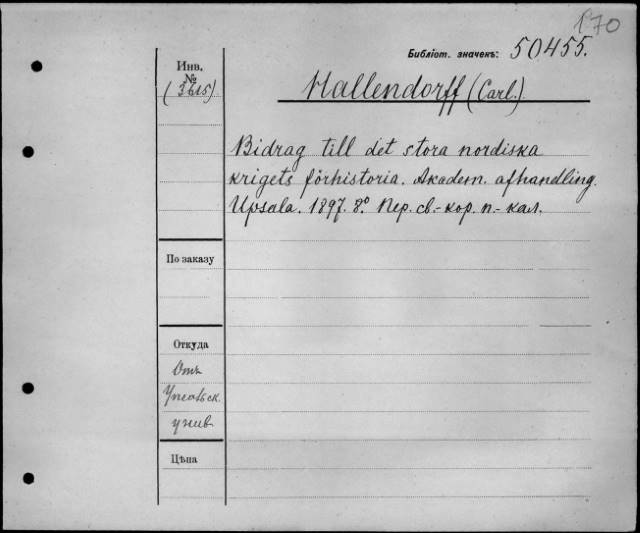 170
Библіот. значекъ: 50455.
Инв.
№
(3615)
Hallendorff (Carl.)
Bidrag till det stora nordiska
krigets förhistoria. Akadem. afhandling.
Upsala. 1897. 8º. Пер. св.-кор. п.-кал.
По заказу
Откуда
Отъ
Упсальск.
унив.
Цѣна